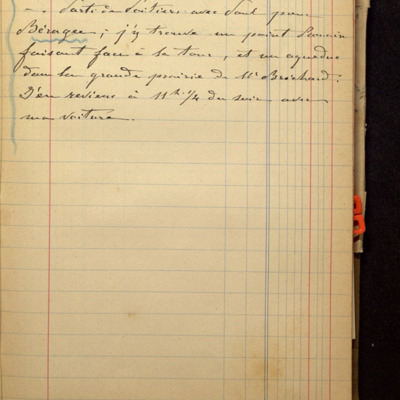 —. Parti de Poitiers avec Paul pour
Béruges; j'y trouve un point Romain
faisant face à la tour, et un aqueduc
dans la grande prairie de Mr Brochard.
J'en reviens à 11h ¼ du soir avec
ma voiture.